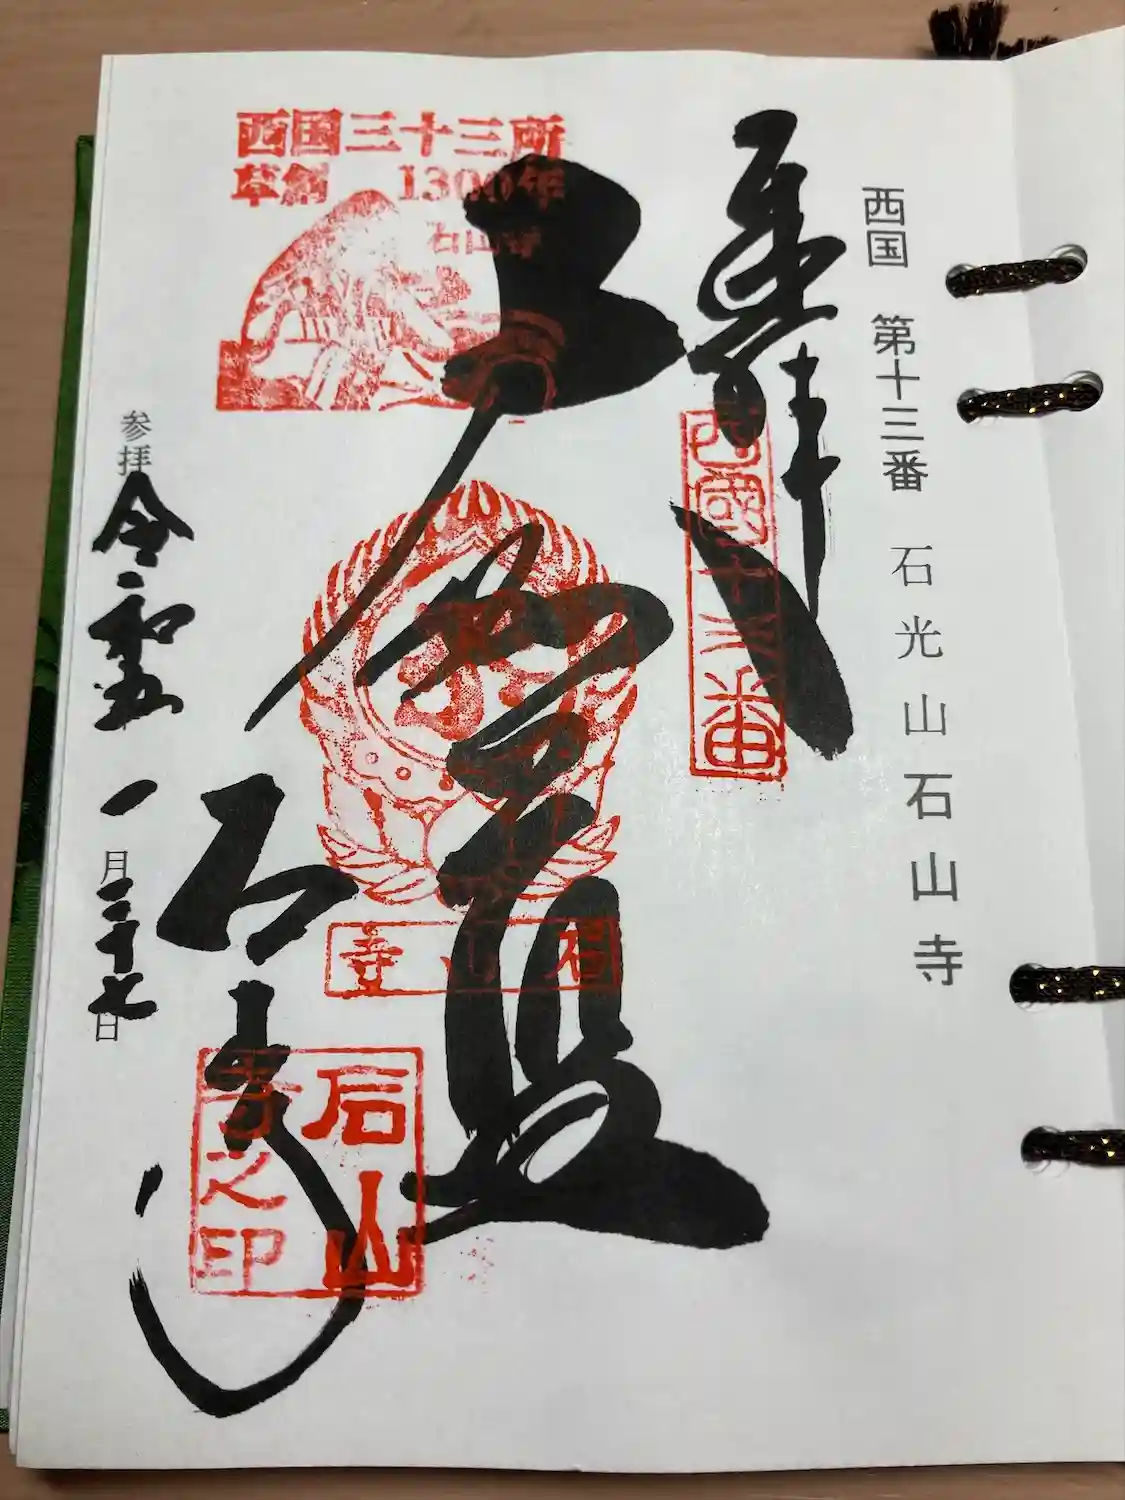 西国 第十三番 石光山石山寺
奉拝
西國十三番
大伽藍
西国三十三所
草創 1300年
石山寺
石山寺
石山寺
石山寺之印
参拝 令和五 一月二十七日